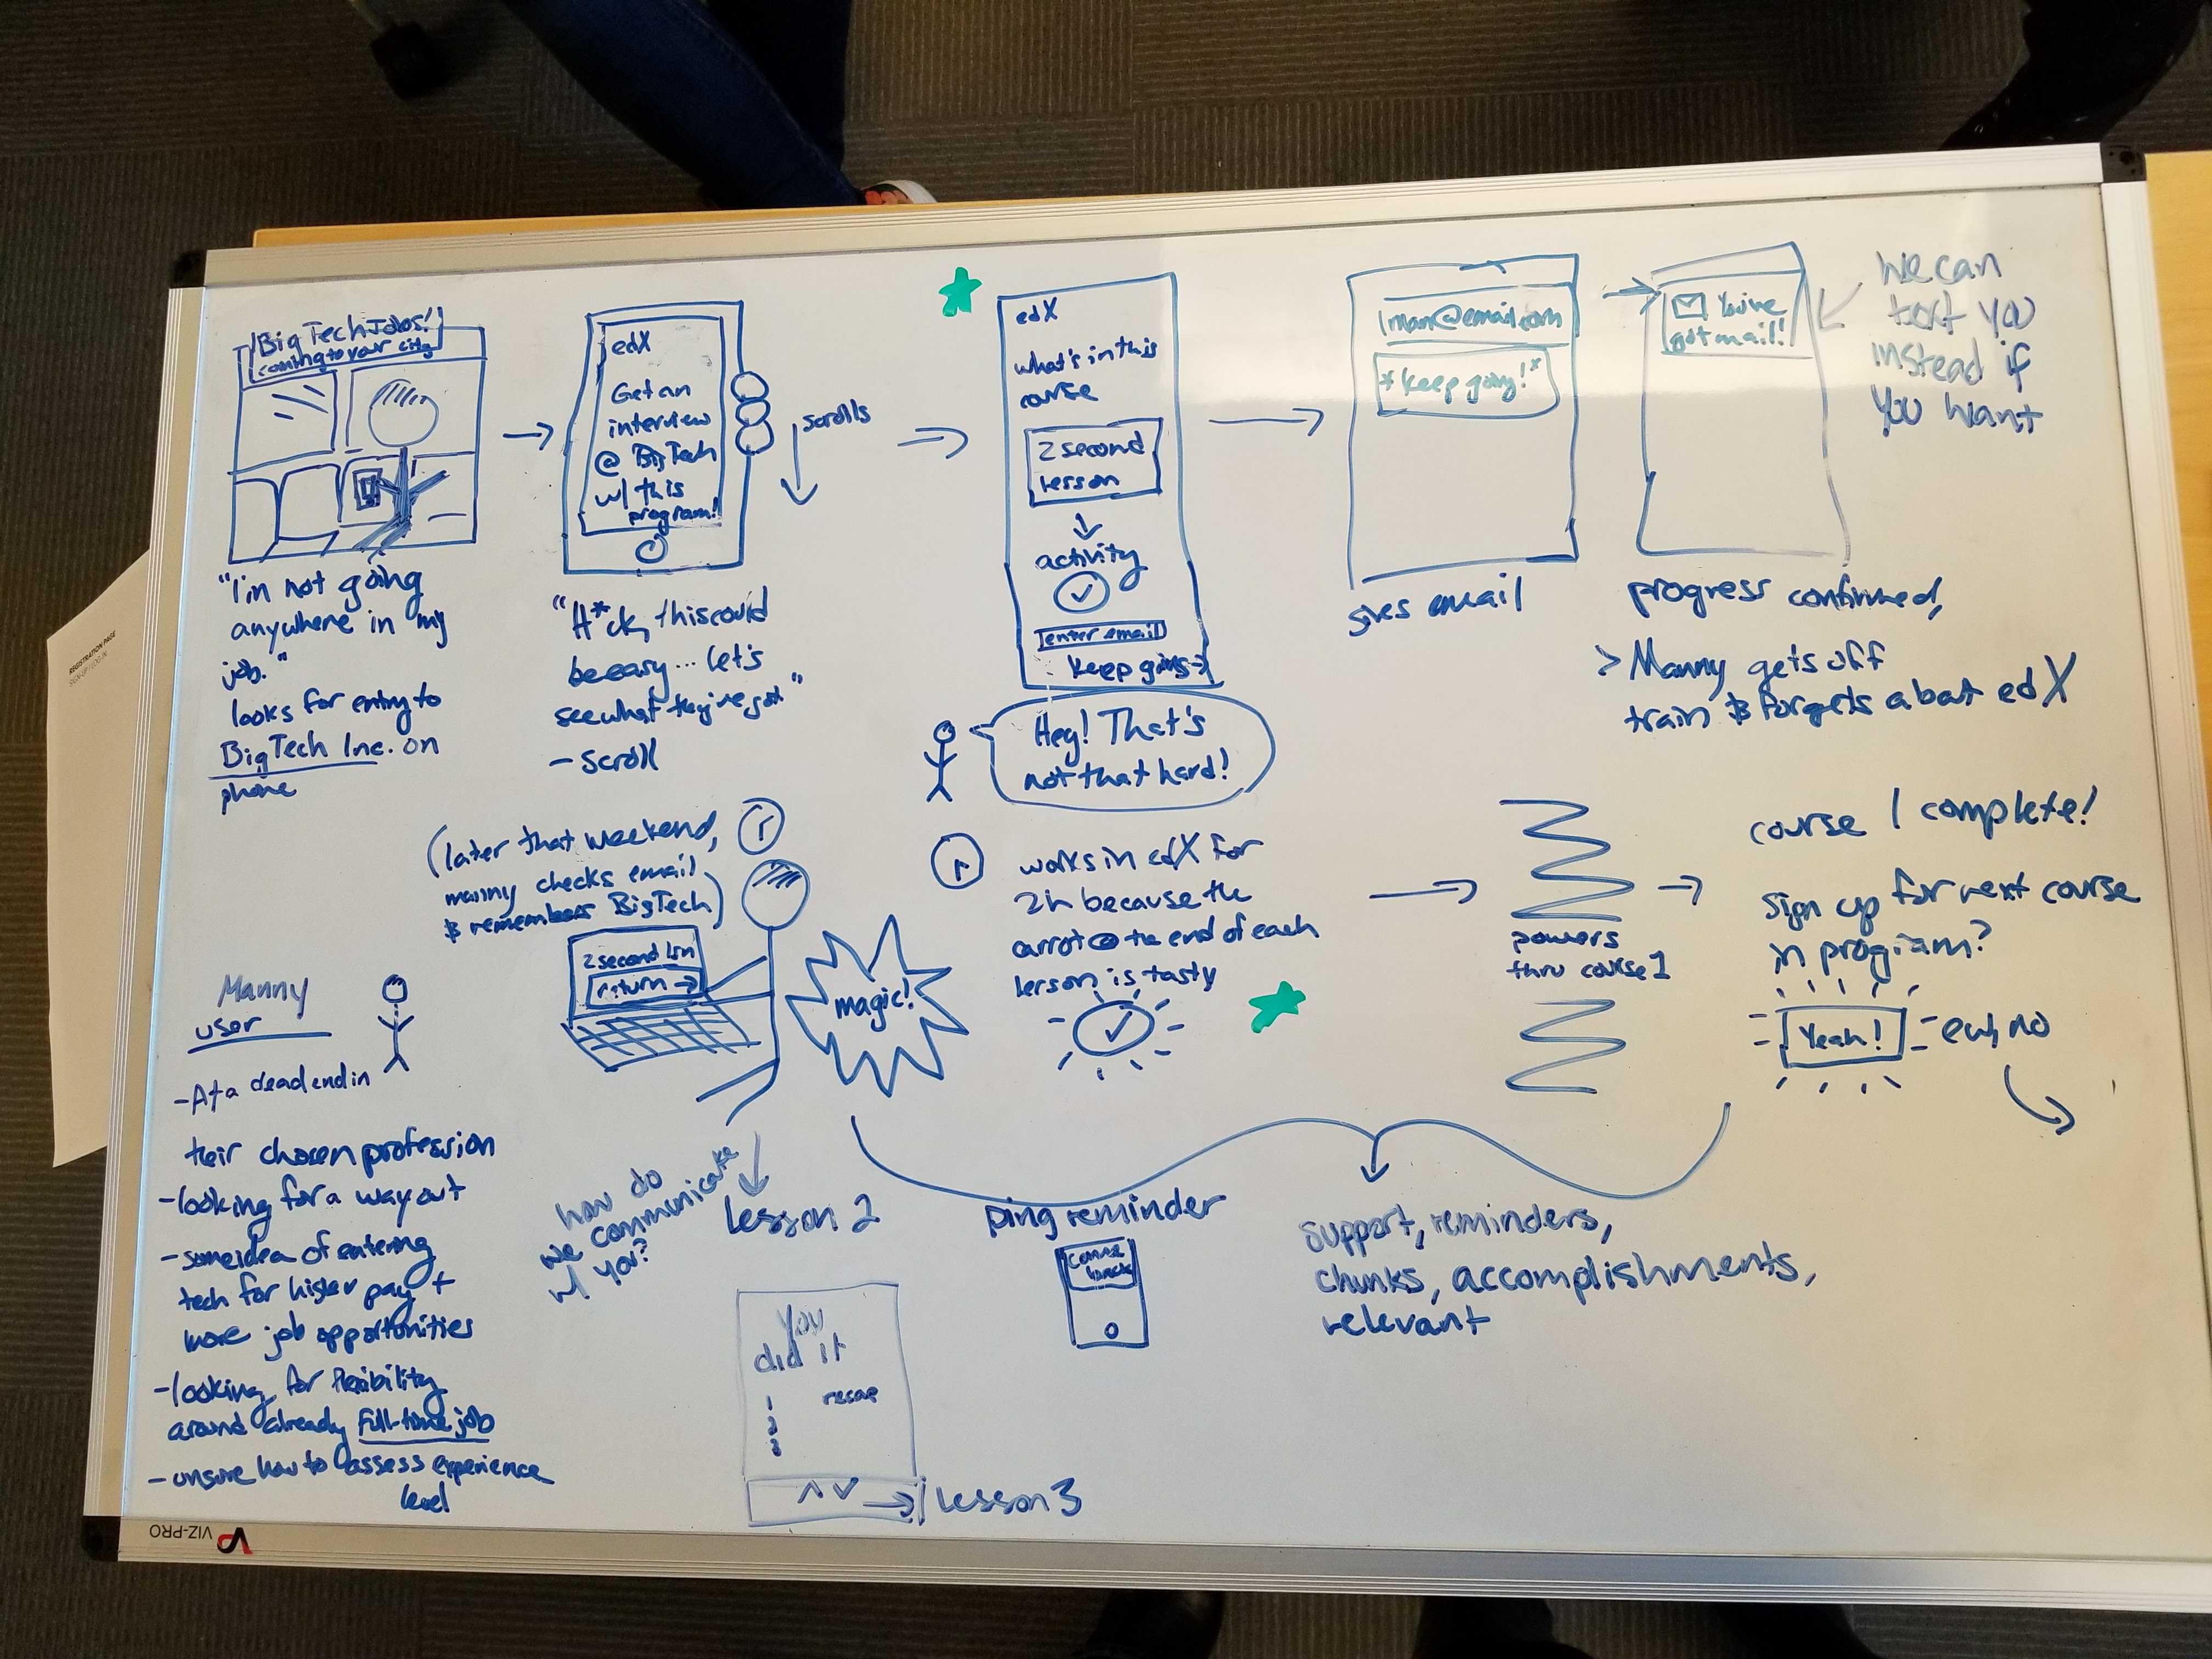 BigTechJobs!
coming to your city
"I'm not going
anywhere in my
job."
looks for entry to
BigTech Inc. on
phone
edX
Get an
interview
@ BigTech
w/ this
program!
scrolls
"H*ck, this could
be easy... let's
see what they've got"
- scroll
edX
what's in this
course
2 second
lesson
activity
enter email
keep going →
Hey! That's
not that hard!
1man@email.com
*keep going!*
gives email
You've
got mail!
we can
text you
instead if
you want
progress confirmed,
> Manny gets off
train & forgets about edX
(later that weekend,
manny checks email
& remembers BigTech)
2 second lsn
return →
magic!
works in edX for
2h because the
carrot @ the end of each
lesson is tasty
powers
thru course 1
course 1 complete!
sign up for next course
in program?
Yeah!
ew, no
Manny
user
- At a dead end in
their chosen profession
- looking for a way out
- some idea of entering
tech for higher pay +
more job opportunities
- looking for flexibility
around already full-time job
- unsure how to assess experience
level
how do
we communicate
w/ you?
lesson 2
you
did it
recap
1
2
3
lesson 3
ping reminder
come
back
support, reminders,
chunks, accomplishments,
relevant
REGISTRATION PAGE
SIGN UP / LOG IN
VIZ-PRO